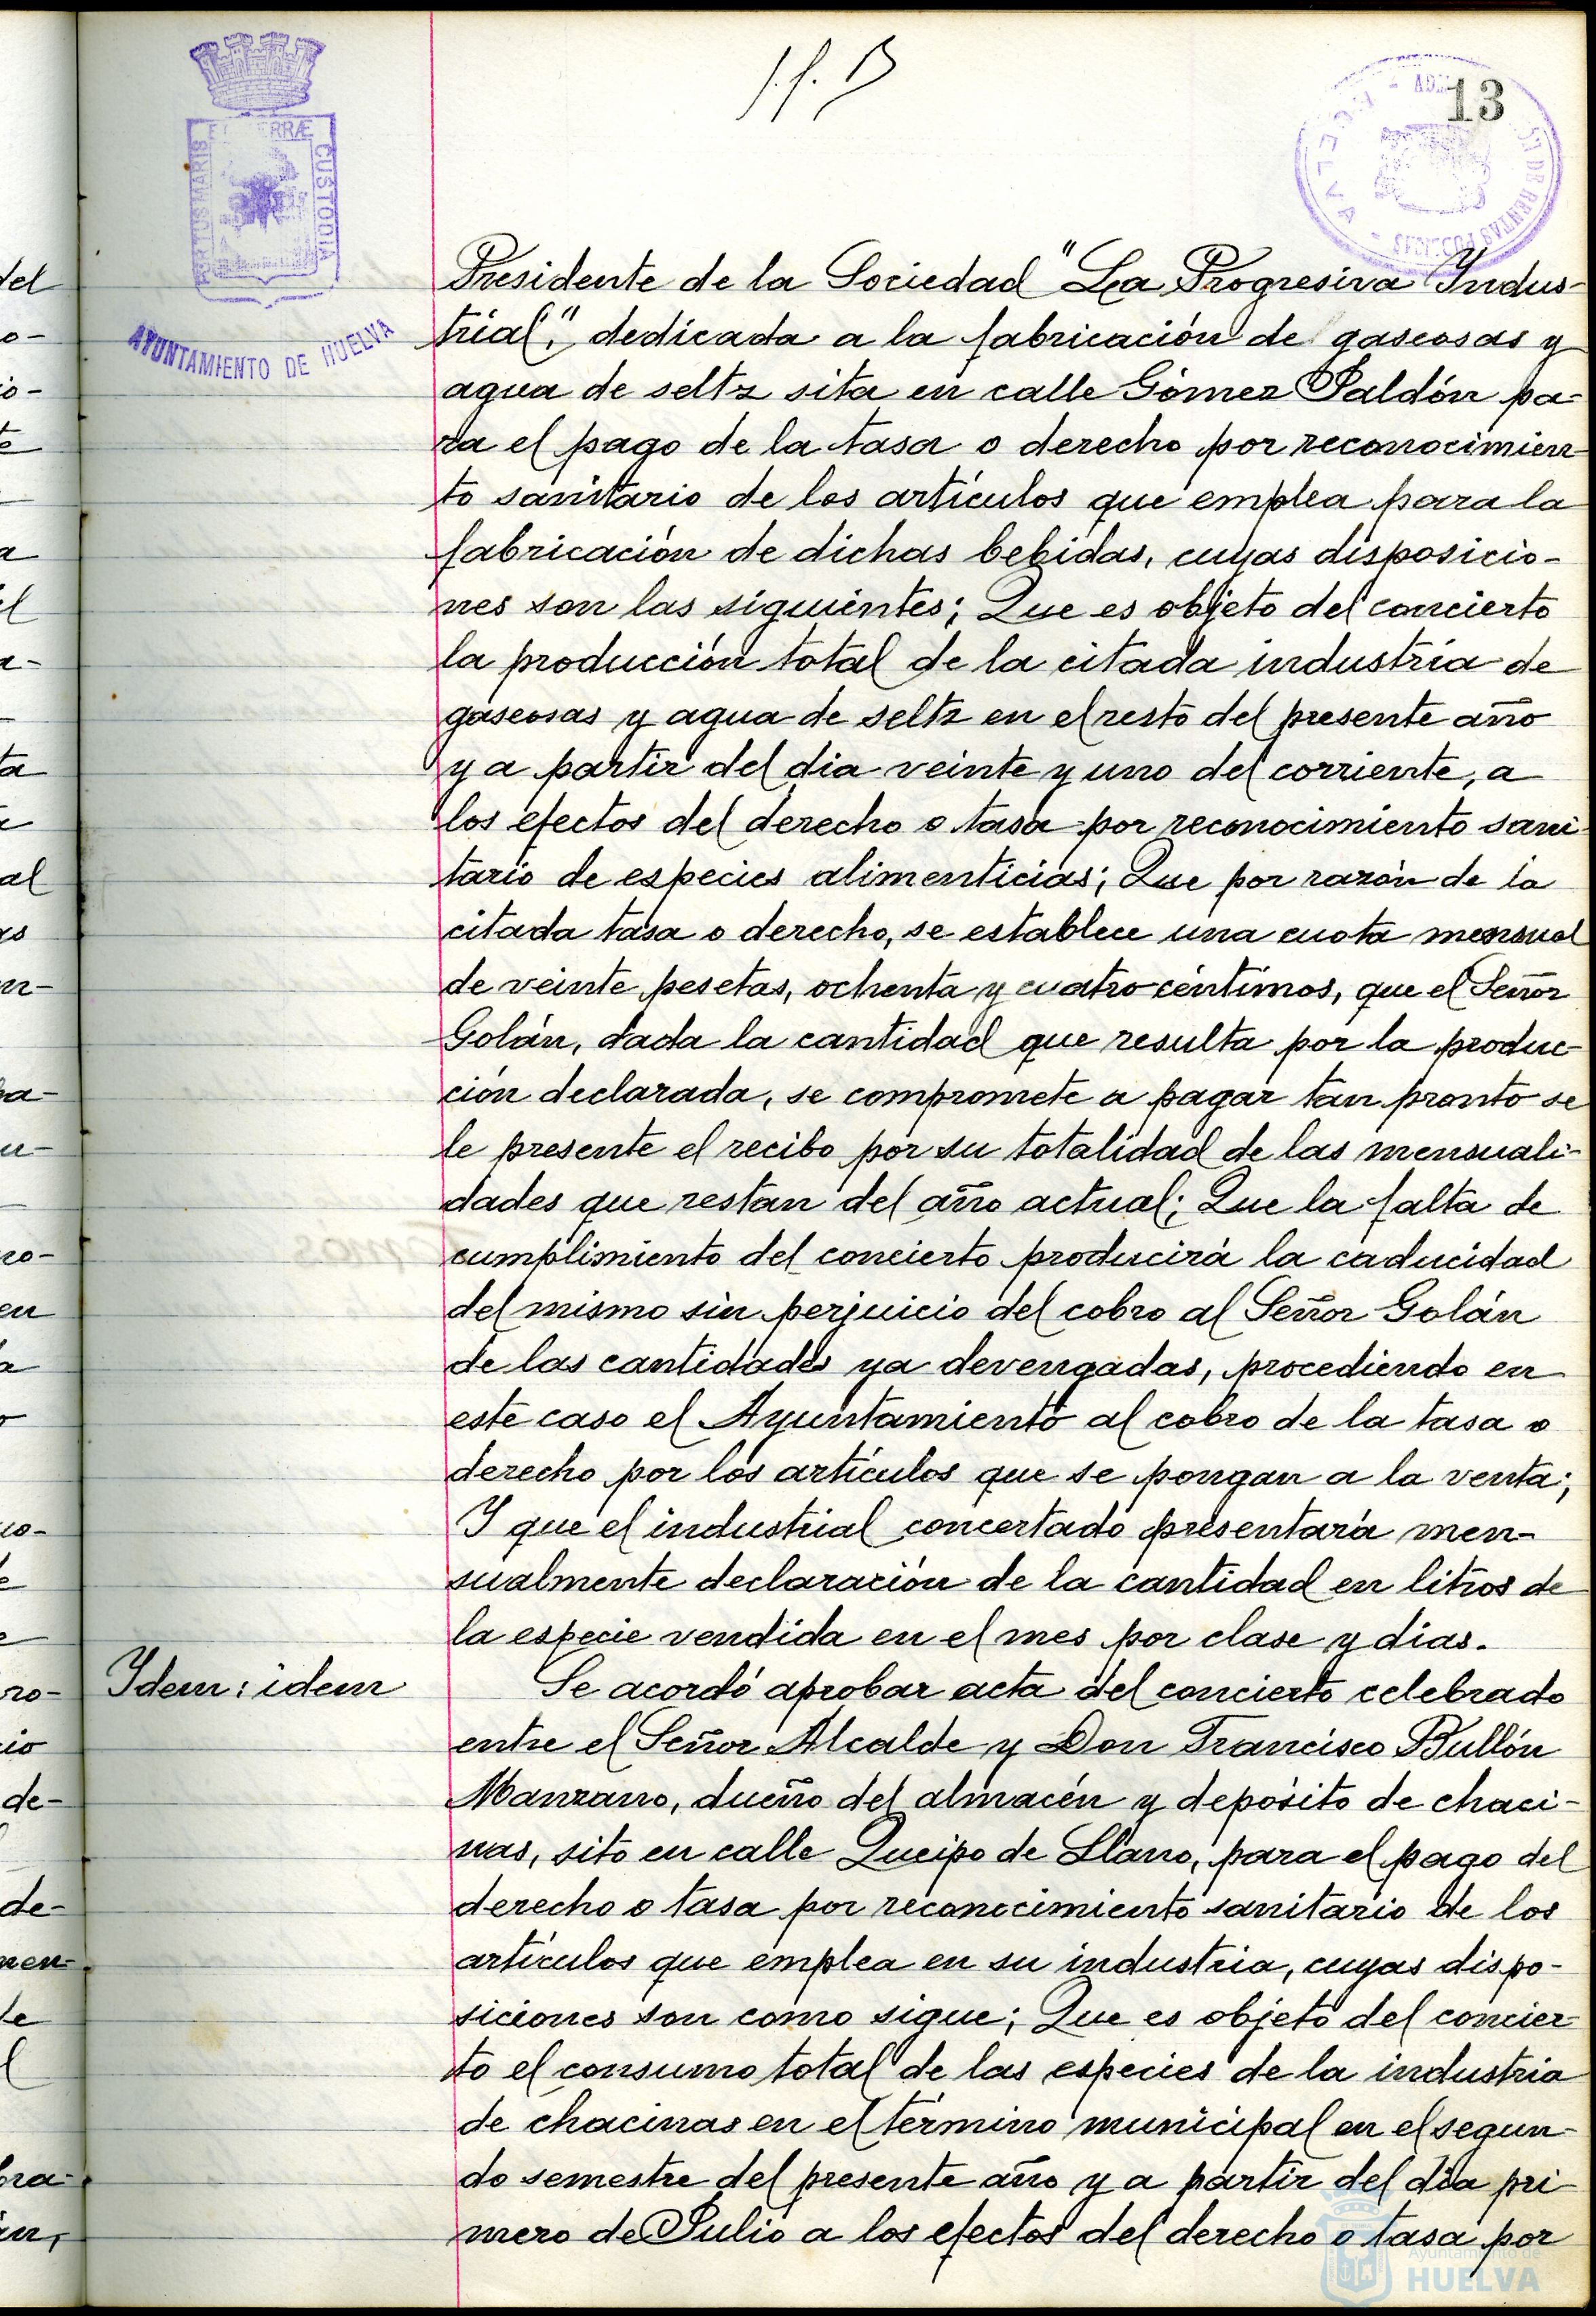 13
PORTUS MARIS
CUSTODIA
AYUNTAMIENTO DE HUELVA
Presidente de la Sociedad "La Progresiva Indus-
trial", dedicada a la fabricación de gaseosas y
agua de seltz sita en calle Gómez Jaldón pa-
ra el pago de la tasa o derecho por reconocimien-
to sanitario de los artículos que emplea para la
fabricación de dichas bebidas, cuyas disposicio-
nes son las siguientes; Que es objeto del concierto
la producción total de la citada industria de
gaseosas y agua de seltz en el resto del presente año
y a partir del dia veinte y uno del corriente, a
los efectos del derecho o tasa por reconocimiento sani-
tario de especies alimenticias; Que por razón de la
citada tasa o derecho, se establece una cuota mensual
de veinte pesetas, ochenta y cuatro céntimos, que el Señor
Golán, dada la cantidad que resulta por la produc-
ción declarada, se compromete a pagar tan pronto se
le presente el recibo por su totalidad de las mensuali-
dades que restan del año actual; Que la falta de
cumplimiento del concierto producirá la caducidad
del mismo sin perjuicio del cobro al Señor Golán
de las cantidades ya devengadas, procediendo en
este caso el Ayuntamiento al cobro de la tasa o
derecho por los artículos que se pongan a la venta;
Y que el industrial concertado presentará men-
sualmente declaración de la cantidad en litros de
la especie vendida en el mes por clase y dias.
Ydem: idem
Se acordó aprobar acta del concierto celebrado
entre el Señor Alcalde y Don Francisco Bullón
Manzano, dueño del almacén y depósito de chaci-
nas, sito en calle Queipo de Llano, para el pago del
derecho o tasa por reconocimiento sanitario de los
artículos que emplea en su industria, cuyas dispo-
siciones son como sigue; Que es objeto del concier-
to el consumo total de las especies de la industria
de chacinas en el término municipal en el segun-
do semestre del presente año y a partir del dia pri-
mero de Julio a los efectos del derecho o tasa por
Ayuntamiento de
HUELVA